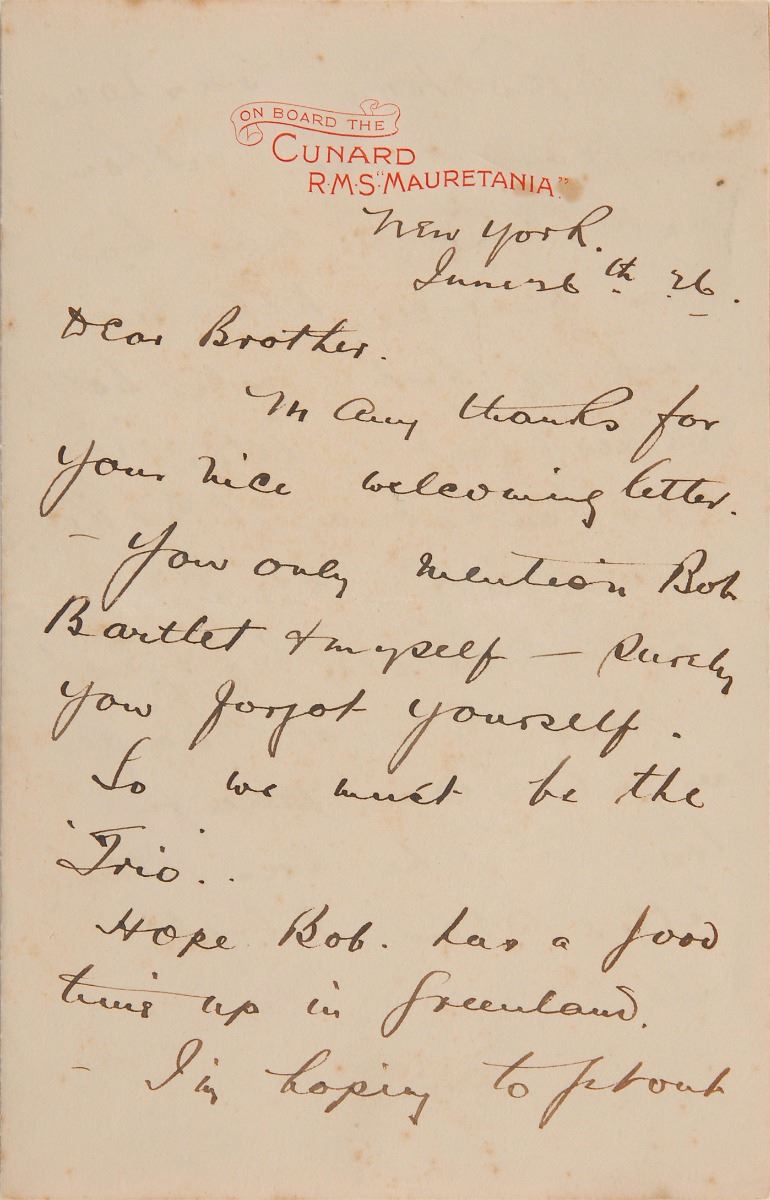 ON BOARD THE
CUNARD
R.M.S. "MAURETANIA."
New York.
June 26th 26.
Dear Brother.
Many thanks for
your nice welcoming letter.
- You only mention Bob
Bartlet & myself - surely
you forgot yourself.
So we must be the
'Trio'..
Hope Bob. has a good
time up in Greenland.
- I'm hoping to get out